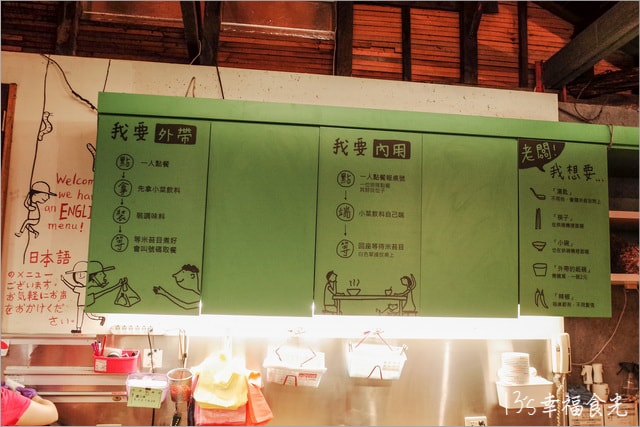 Welcome
we have
an ENGLISH
menu!
日本語
のメニュー
ございます.
お気軽にお声
をおかけくだ
さい.
我要外帶
點 一人點餐
拿 先拿小菜飲料
裝 裝調味料
等 等米苔目煮好
會叫號碼取餐
我要內用
點 一人點餐報桌號
端 小菜飲料自己端
等 回座等待米苔目
老闆!
我想要...
「湯匙」
「筷子」
「小碗」
「外帶的紙碗」
「辣椒」
13's幸福食光